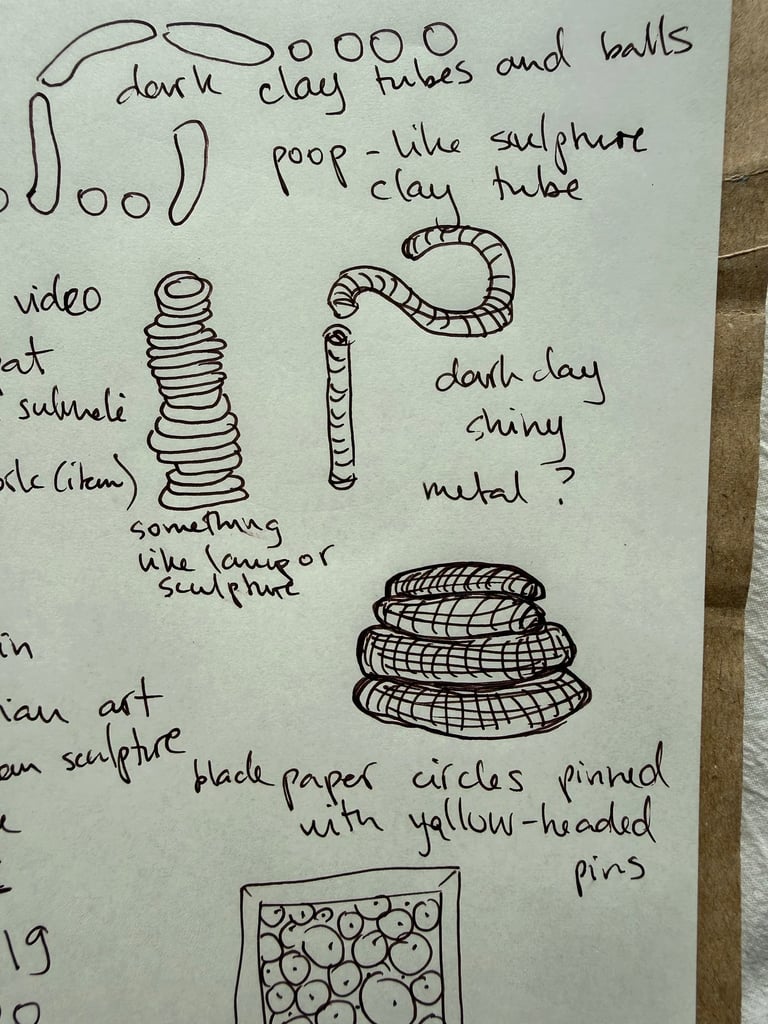 dark clay tubes and balls
poop-like sculpture
clay tube
video
at
dark clay
shiny
metal ?
(item)
something
like lamp or
sculpture
in
ian art
an sculpture
black paper circles pinned
with yellow-headed
pins
19